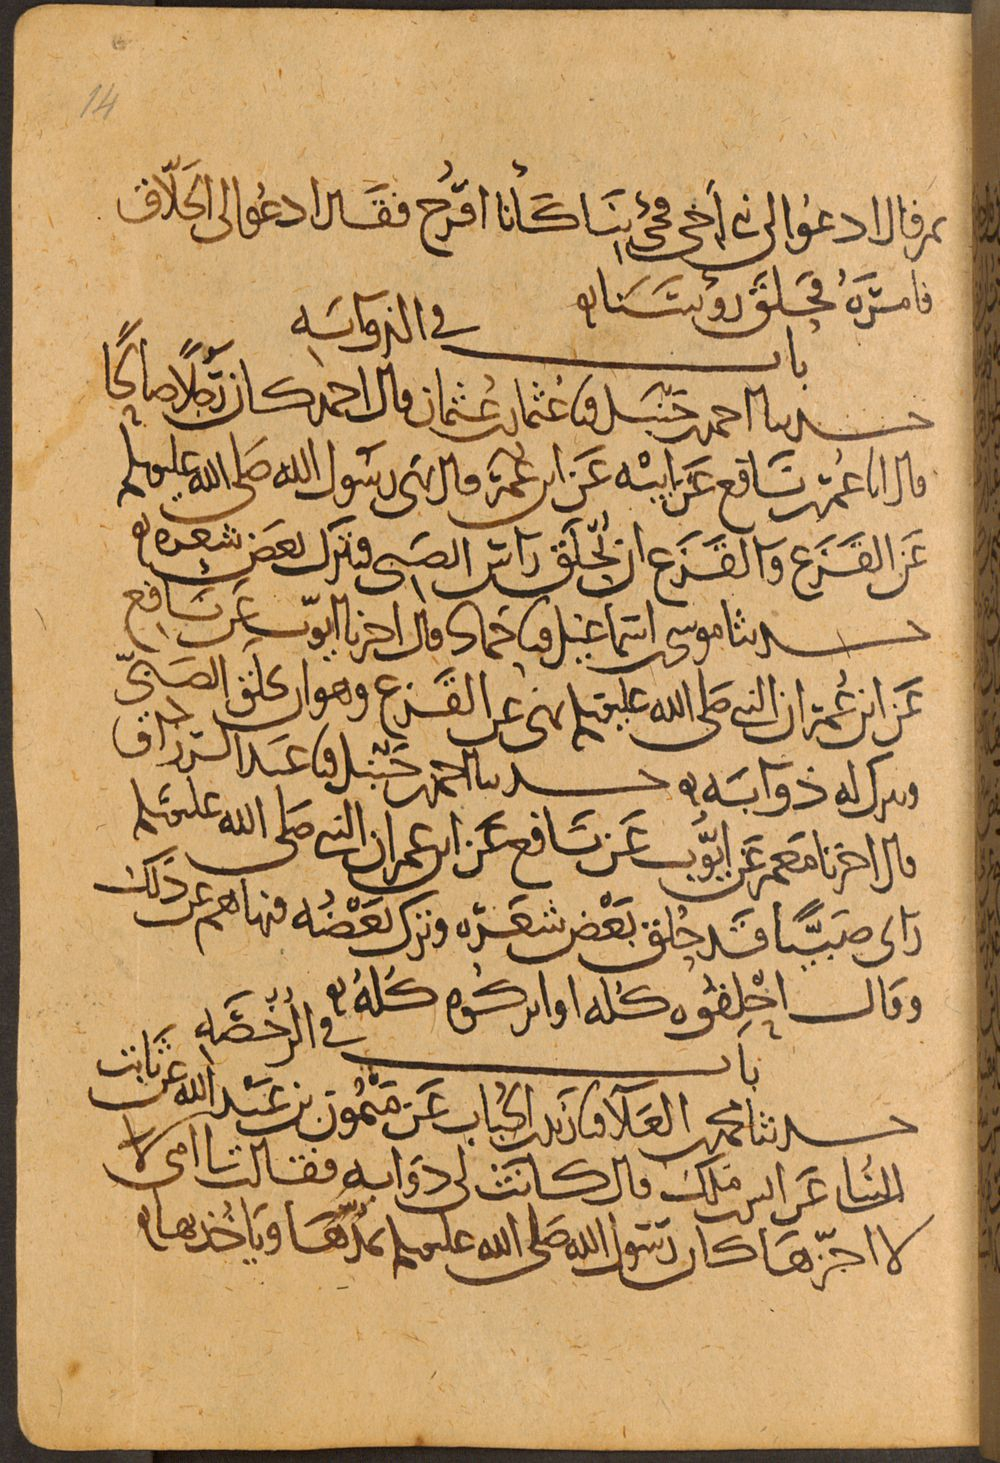 14
ثم قال ادعوا لي بني أخي فجئ بنا كأنا افرخ فقال ادعوا لي الحلاق
فامره فحلق رؤسنا
باب في الذوابه
حدثنا احمد بن حنبل ثنا عثمان بن عثمان قال احمد كان رجلا صالحا
قال انا عمر بن نافع عن ابيه عن ابن عمر قال نهى رسول الله صلى الله عليه وسلم
عن القزع والقزع ان يحلق راس الصبي فيترك بعض شعره
حدثنا موسى بن اسماعيل ثنا حماد قال اخبرنا ايوب عن نافع
عن ابن عمر ان النبي صلى الله عليه وسلم نهى عن القزع وهو ان يحلق الصبي
ويترك له ذوابه حدثنا احمد بن حنبل ثنا عبد الرزاق
قال اخبرنا معمر عن ايوب عن نافع عن ابن عمر ان النبي صلى الله عليه وسلم
راى صبيا قد حلق بعض شعره وترك بعضه فنهاهم عن ذلك
وقال احلقوه كله او اتركوه كله
باب في الرخصه
حدثنا محمد بن العلا ثنا زيد بن الحباب عن ميمون بن عبد الله عن ثابت
البناني عن انس بن ملك قال كانت لي ذوابه فقالت امي
لا اجزها كان رسول الله صلى الله عليه وسلم يمدها وياخذ بها